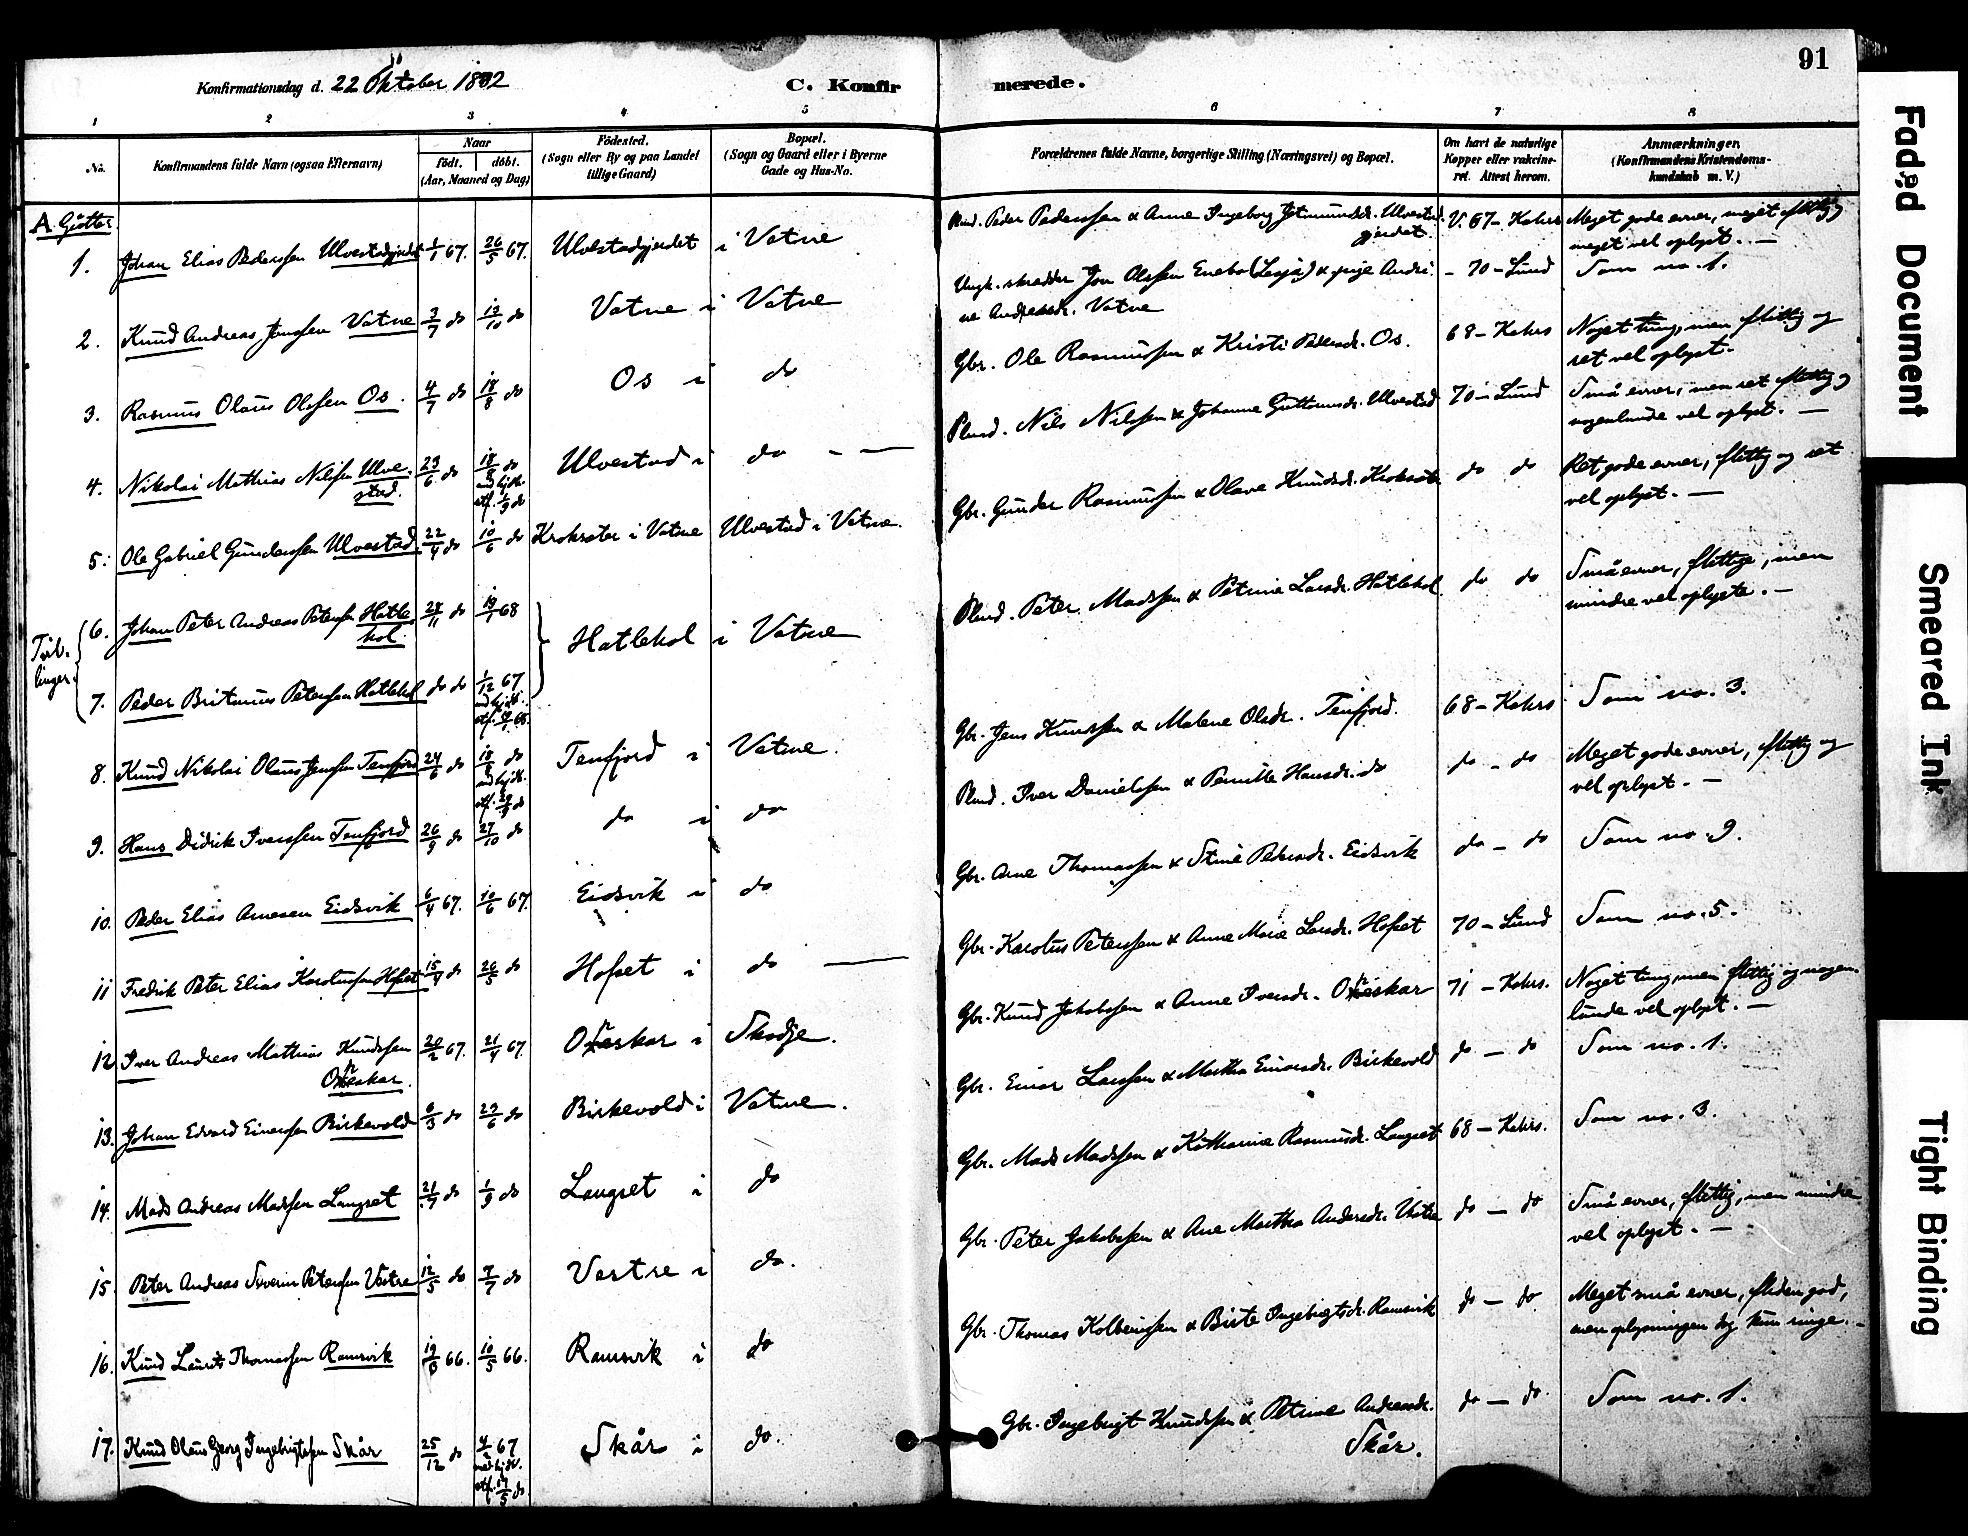 91
Konfirmationsdag d. 22 Oktober 1882
C. Konfir merede.
1 2 3 4 5 6 7 8
No.
Konfirmandens fulde Navn (ogsaa Efternavn)
Naar
födt. döbt.
(Aar, Maaned og Dag)
Födested.
(Sogn eller By og paa Landet
tillige Gaard)
Bopæl.
(Sogn og Gaard eller i Byerne
Gade og Hus-No.
Forældrenes fulde Navne, borgerlige Stilling (Næringsvei) og Bopæl.
Om havt de naturlige
Kopper eller vakcine-
ret. Attest herom.
Anmærkninger.
(Konfirmandens Kristendoms-
kundskab m. V.)
A. Gutter.
1. Johan Elias Pederssen Ulvestadgjerdet 1/1 67. 26/5 67. Ulvestadgjerdet i Vatne
Peder Pederssen & Anne Ingeborg Ulvestad-
gjerdet. V. 67 - Kahrs Meget gode evner, meget flittig og
meget vel oplyst. -
2. Knud Andreas Jonssen Vatne 3/7 do 13/10 do Vatne i Vatne
Ungk. skrædder Jon Olssen Enebo (Lesja) & pige Andri-
ne Andreasdr. Vatne - 70 - Lund Som no. 1.
3. Rasmus Olaus Olssen Os. 4/7 do 18/8 do Os i do
Gbr. Ole Rasmussen & Kristi Pedersdr. Os. 68 - Kahrs Noget tung, men flittig og
ret vel oplyst.
4. Nikolai Mathias Nilssen Ulve-
stad. 23/6 do 18/8 do Ulvestad i do - -
Plsmd. Nils Nilssen & Johanne Guttormsdr. Ulvestad 70 - Lund Små evner, men ret flittig og
nogenlunde vel oplyst. -
5. Ole Gabriel Gunderssen Ulvestad. 22/4 do 10/6 do Kroksæter i Vatne Ulvestad i Vatne.
Gbr. Gunder Rasmussen & Olave Knudsdr. Kroksæter do do Ret gode evner, flittig og ret
vel oplyst. -
Tvil-
linger.
6. Johan Peter Andreas Peterssen Hatle-
hol. 28/11 do 19/1 68 Hatlehol i Vatne
Plsmd. Peter Madssen & Petrine Larsdr. Hatlehol do do Små evner, flittige, men
mindre vel oplyste. -
7. Peder Britanus Peterssen Hatlehol do do 1/12 67
8. Knud Nikolai Olaus Jenssen Tenfjord 24/6 do 18/8 do Tenfjord i Vatne.
Gbr. Jens Knudssen & Malene Olsdr. Tenfjord. 68 - Kahrs Som no. 3.
9. Hans Didrik Iverssen Tenfjord 26/9 do 27/10 do do i do
Plsmd. Iver Danielssen & Pernille Hansdr. do do - do Meget gode evner, flittig og
vel oplyst. -
10. Peder Elias Arnesen Eidsvik 6/4 67. 10/6 67. Eidsvik i do
Gbr. Arne Thomassen & Stine Pedersdr. Eidsvik do - do Som no. 9.
11 Fredrik Peter Elias Karolussen Hofset 15/4 do 26/5 do Hofset i do
Gbr. Karolus Peterssen & Anne Marie Larsdr. Hofset 70 - Lund Som no. 5.
12 Iver Andreas Mathias Knudssen
20/2 67. 21/4 67. i Skodje.
Gbr. Knud Jakobssen & Anne Iversdr. 71 - Kahrs. Noget tung, men flittig og nogen-
lunde vel oplyst. -
13. Johan Edvard Einerssen Birkevold 6/3 do 23/6 do Birkevold i Vatne.
Gbr. Einar Larssen & Martha Einarsdr. Birkevold do - do Som no. 1.
14. Mads Andreas Madssen Langset 21/7 do 1/9 do Langset i do
Gbr. Mads Madssen & Katharine Rasmusdr. Langset 68 - Kahrs. Som no. 3.
15. Peter Andreas Severin Peterssen Vestre 12/5 do 7/7 do Vestre i do.
Gbr. Peter Jakobssen & Ane Martha Andersdr. Vestre do - do Små evner, flittig, men mindre
vel oplyst. -
16. Knud Laurits Thomassen Ramsvik 19/3 66. 10/5 66. Ramsvik i do
Gbr. Thomas Kolbeinssen & Birte Ingebrigtsdr. Ramsvik do - do Meget små evner, fliden god,
men oplysningen kun ringe. -
17. Knud Olaus Georg Ingebrigtssen Skår 25/12 do 67 Skår i do.
Gbr. Ingebrigt Knudssen & Petrine Andreasdr.
Skår. do - do Som no. 1.
Faded Document
Smeared Ink
Tight Binding